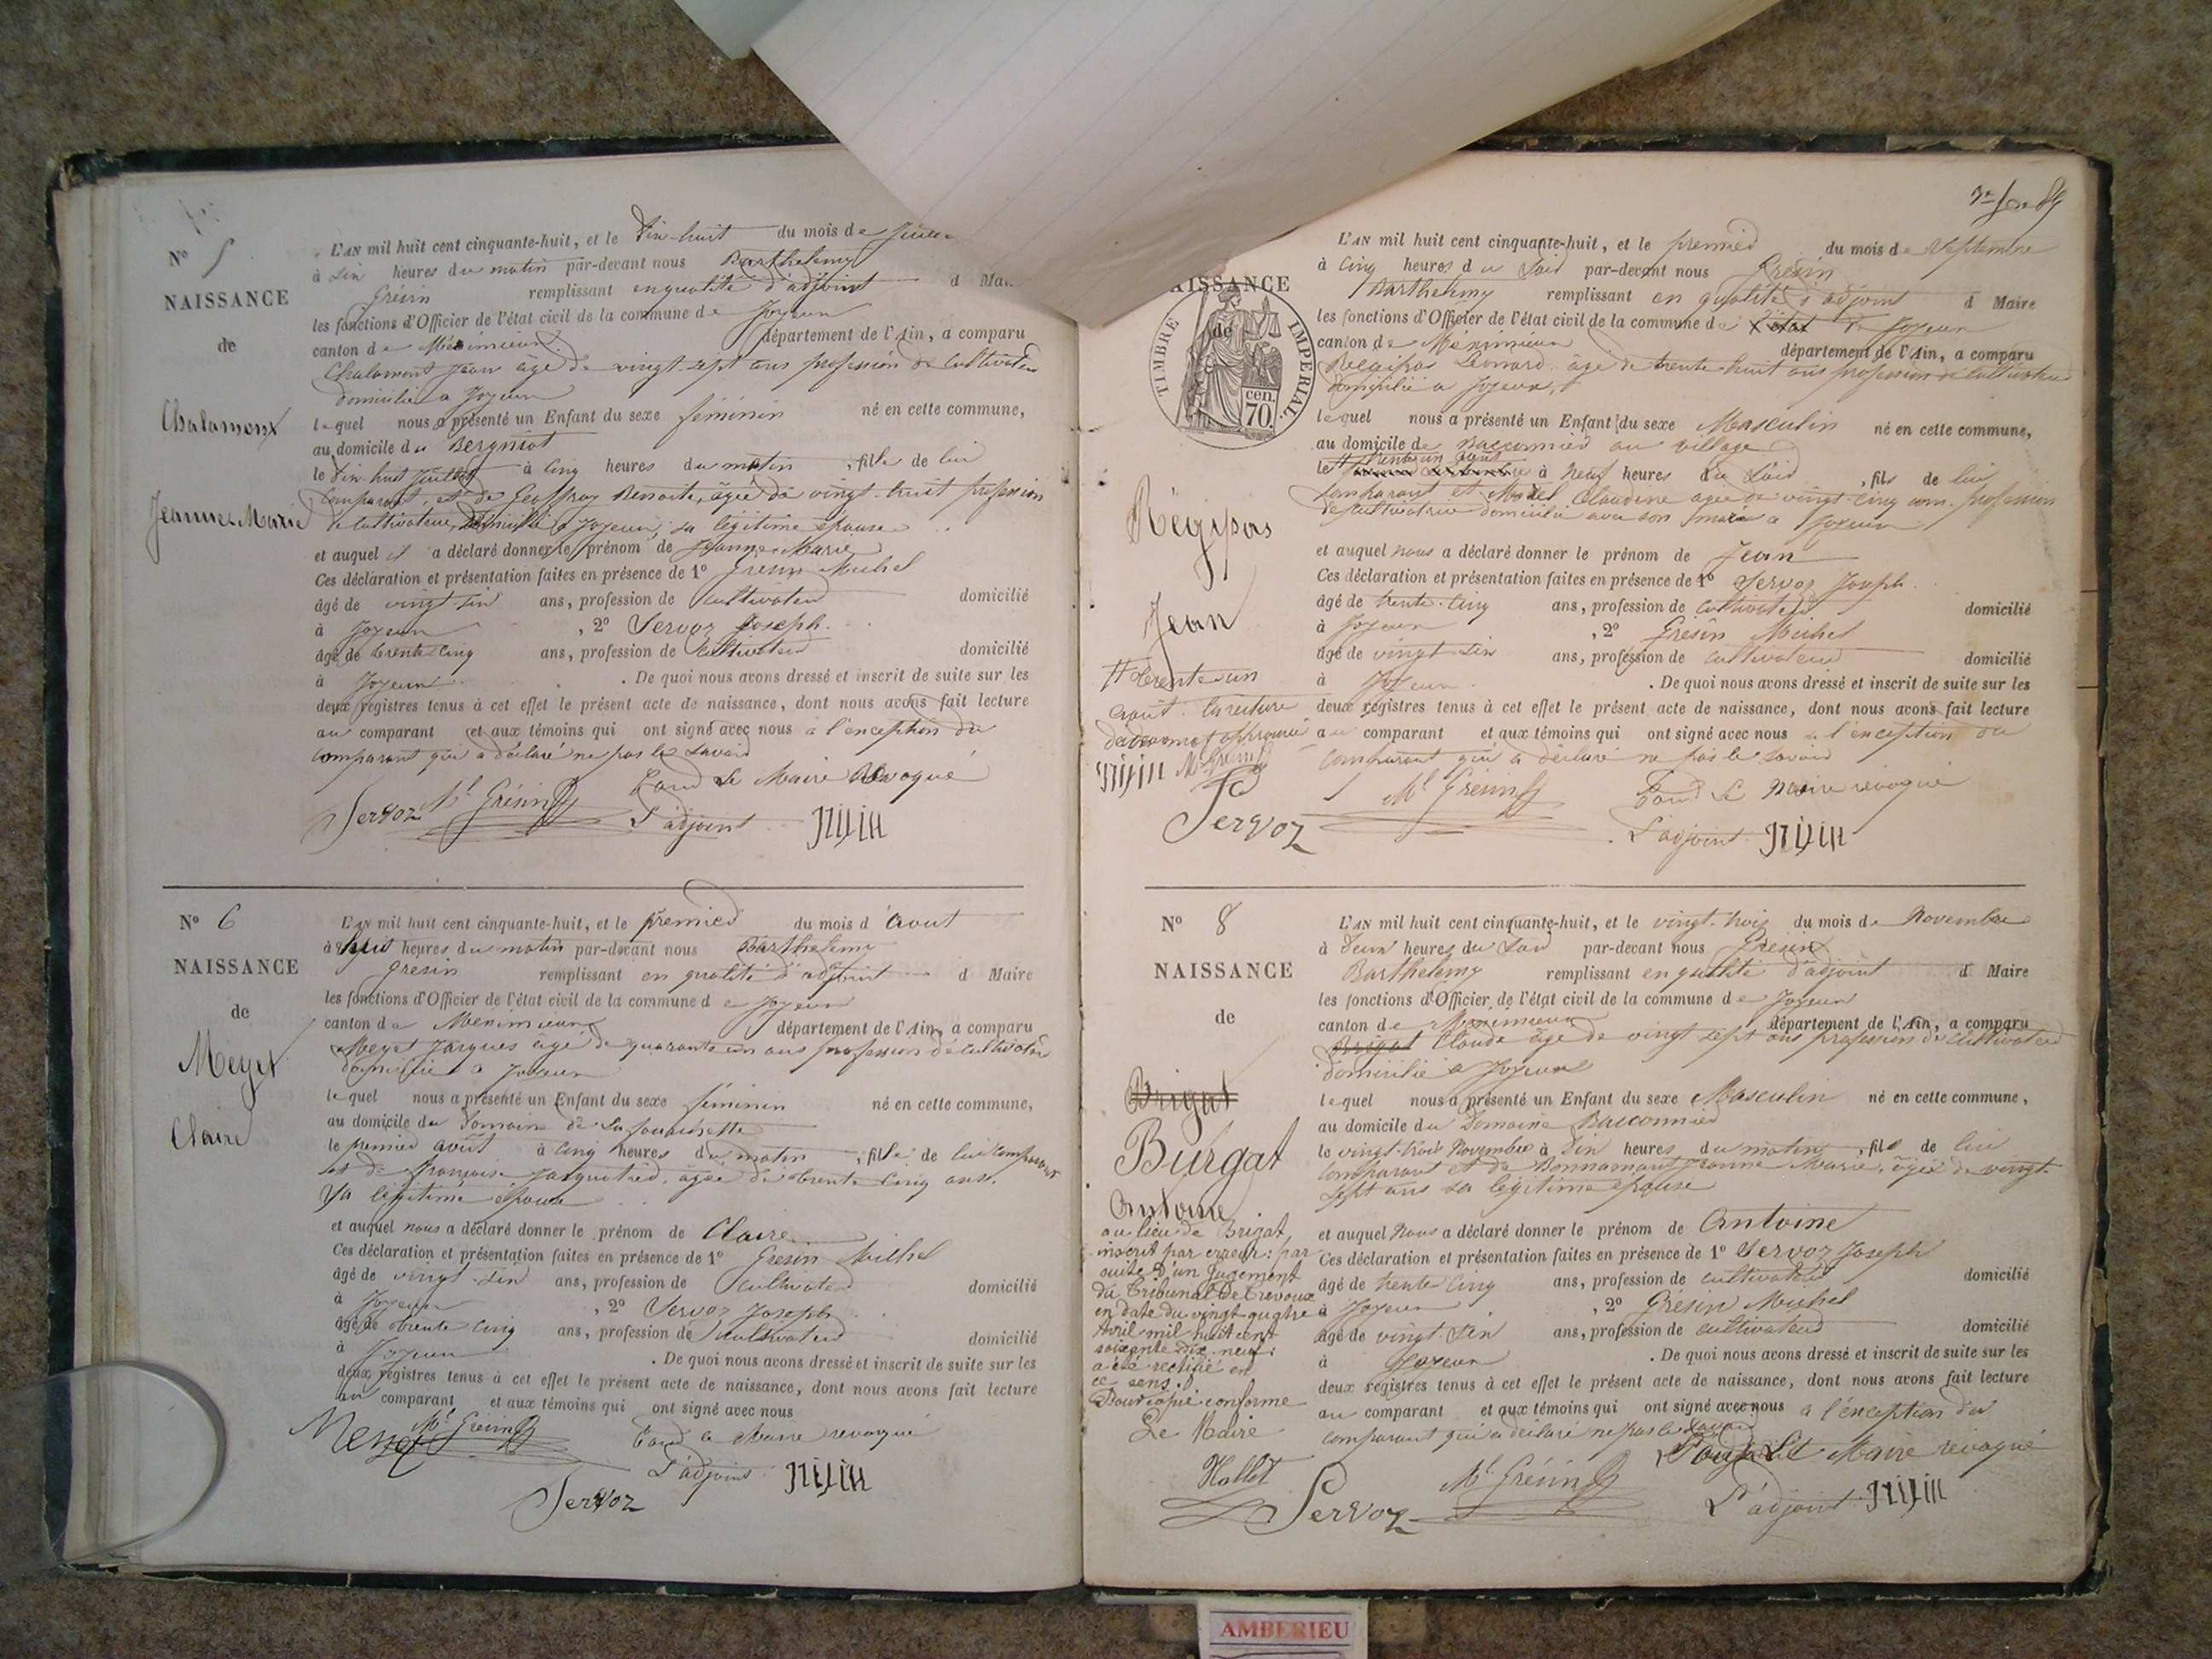 N° 5
NAISSANCE
de
Chalamont
Jeanne Marie
L'AN mil huit cent cinquante-huit, et le dix huit du mois de
à dix heures du matin par-devant nous Barthelemy
Grésin remplissant en qualité d'adjoint d
les fonctions d'Officier de l'état civil de la commune de Joyeux
canton de Méximieux département de l'Ain, a comparu
Chalamont Jean âgé de vingt-sept ans profession de Cultivateur
domicilié a Joyeux
lequel nous a présenté un Enfant du sexe féminin né en cette commune,
au domicile du Bergniot
le dix huit Juillet à Cinq heures du matin , fille de lui
Comparant, et de Geoffray Benoite, âgée de vingt-huit profession
de Cultivateur, domicilié a Joyeux, sa légitime épouse
et auquel il a déclaré donner le prénom de Jeanne-Marie
Ces déclaration et présentation faites en présence de 1° Gresin Michel
âgé de vingt-six ans, profession de Cultivateur domicilié
à Joyeux , 2° Servoz Joseph.
âgé de trente cinq ans, profession de Cultivateur domicilié
à Joyeux . De quoi nous avons dressé et inscrit de suite sur les
deux registres tenus à cet effet le présent acte de naissance, dont nous avons fait lecture
au comparant et aux témoins qui ont signé avec nous a l'exception du
comparant qui a déclaré ne pas le savoir
Pour Le Maire Révoqué
Servoz Mel Grésin L'adjoint
N° 6
NAISSANCE
de
Méyet
Claire
L'AN mil huit cent cinquante-huit, et le premier du mois d'Aout
à huit heures du matin par-devant nous Barthelemy
Gresin remplissant en qualité d'adjoint d Maire
les fonctions d'Officier de l'état civil de la commune de Joyeux
canton de Meximieux département de l'Ain, a comparu
Meyet Jacques âgé de quarante un ans profession de Cultivateur
domicilié a Joyeux
lequel nous a présenté un Enfant du sexe féminin né en cette commune,
au domicile du Domaine de
le premier août à Cinq heures du matin , fille de lui comparant
et de Françoise Jacquitied, âgée de trente cinq ans,
sa légitime épouse
et auquel nous a déclaré donner le prénom de Claire
Ces déclaration et présentation faites en présence de 1° Gresin Michel
âgé de vingt-six ans, profession de Cultivateur domicilié
à Joyeux , 2° Servoz Joseph
âgé de trente cinq ans, profession de Cultivateur domicilié
à Joyeux . De quoi nous avons dressé et inscrit de suite sur les
deux registres tenus à cet effet le présent acte de naissance, dont nous avons fait lecture
au comparant et aux témoins qui ont signé avec nous
Meyet Mel Grésin Pour le Maire revoqué
L'adjoint
Servoz
NAISSANCE
de
TIMBRE IMPERIAL.
cen.
70.
Régipas
Jean
trente un
août. la rature
Mel Grésin
Servoz
L'AN mil huit cent cinquante-huit, et le premier du mois de Septembre
à Cinq heures du Soir par-devant nous Grésin
Barthelemy remplissant en qualité d'adjoint d Maire
les fonctions d'Officier de l'état civil de la commune de Joyeux
canton de Meximieux département de l'Ain, a comparu
Régipas Léonard âgé de trente-huit ans profession de Cultivateur
domicilié a Joyeux,
lequel nous a présenté un Enfant du sexe Masculin né en cette commune,
au domicile de Balconnied au village
le trente un août à Neuf heures du Soir , fils de lui
Comparant et Claudine âgée de vingt-cinq ans, profession
de cultivatrice domicilié avec son mari a Joyeux
et auquel nous a déclaré donner le prénom de Jean
Ces déclaration et présentation faites en présence de 1° Servoz Joseph.
âgé de trente-cinq ans, profession de Cultivateur domicilié
à Joyeux , 2° Grésin Michel
âgé de vingt-six ans, profession de cultivateur domicilié
à Joyeux . De quoi nous avons dressé et inscrit de suite sur les
deux registres tenus à cet effet le présent acte de naissance, dont nous avons fait lecture
au comparant et aux témoins qui ont signé avec nous a l'exception du
Comparant qui a déclaré ne pas le savoir
Mel Grésin Pour le Maire révoqué
L'adjoint
N° 8
NAISSANCE
de
Brigat
Burgat
Antoine
au lieu de Brigat
inscrit par erreur: par
suite d'un Jugement
du Tribunal de Trevoux
en date du vingt quatre
Avril mil huit cent
soixante dix neuf:
a été rectifié en
ce sens.
Pour copie conforme
Le Maire
Hallet
L'AN mil huit cent cinquante-huit, et le vingt-trois du mois de Novembre
à Deux heures du Soir par-devant nous Gresin
Barthelemy remplissant en qualité d'adjoint d Maire
les fonctions d'Officier de l'état civil de la commune de Joyeux
canton de Meximieux département de l'Ain, a comparu
Brigat Claude âgé de vingt sept ans profession de Cultivateur
domicilié a Joyeux
lequel nous a présenté un Enfant du sexe Masculin né en cette commune,
au domicile du Domaine Balconnied
le vingt-trois Novembre à Dix heures du matin , fils de lui
Comparant et de Bonnamant Jeanne Marie, âgée de vingt
sept ans sa légitime épouse
et auquel nous a déclaré donner le prénom de Antoine
Ces déclaration et présentation faites en présence de 1° Servoz Joseph
âgé de trente cinq ans, profession de cultivateur domicilié
à Joyeux , 2° Grésin Michel
âgé de vingt-six ans, profession de cultivateur domicilié
à Joyeux . De quoi nous avons dressé et inscrit de suite sur les
deux registres tenus à cet effet le présent acte de naissance, dont nous avons fait lecture
au comparant et aux témoins qui ont signé avec nous a l'exception du
comparant qui a déclaré ne pas le savoir
Pour Le Maire révoqué
Servoz Mel Grésin L'adjoint
AMBERIEU